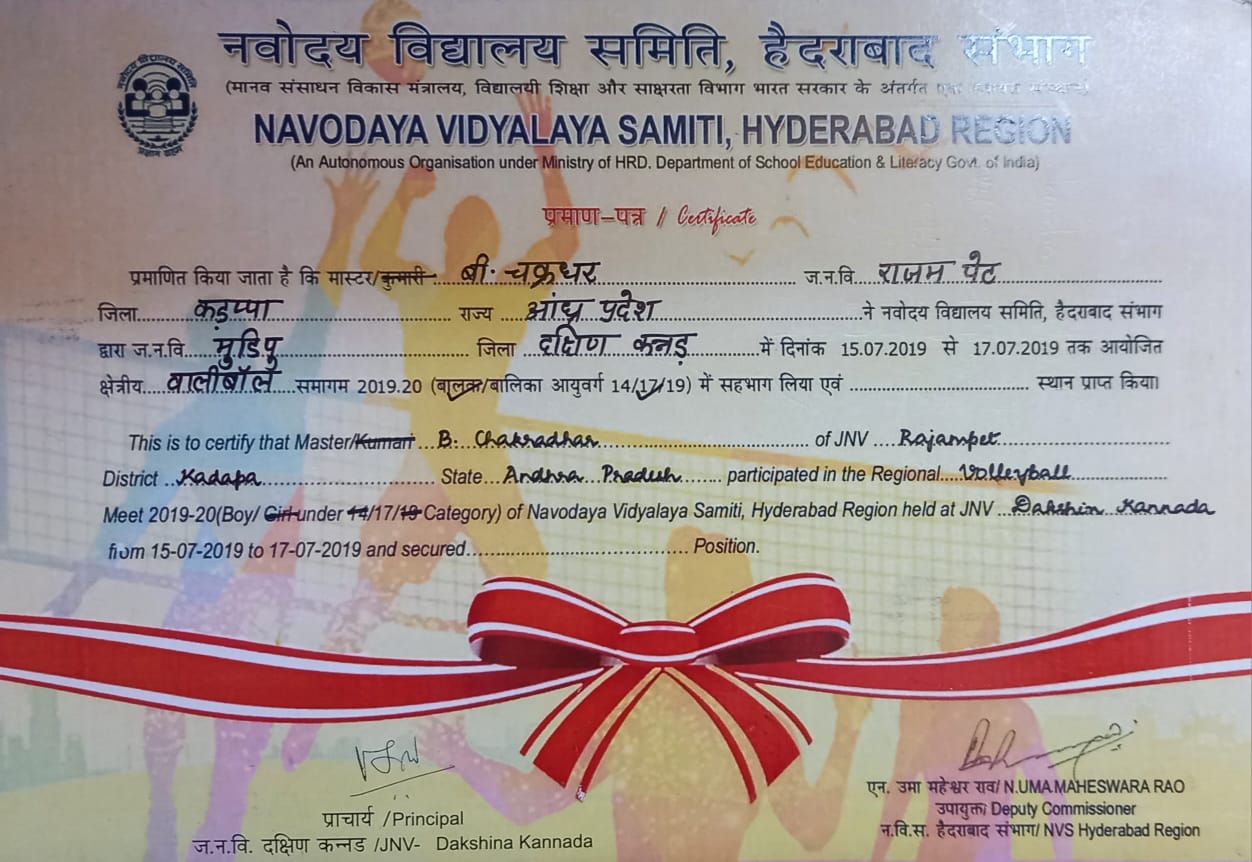 नवोदय विद्यालय समिति, हैदराबाद संभाग
(मानव संसाधन विकास मंत्रालय, विद्यालयी शिक्षा और साक्षरता विभाग भारत सरकार के अंतर्गत
NAVODAYA VIDYALAYA SAMITI, HYDERABAD REGION
(An Autonomous Organisation under Ministry of HRD, Department of School Education & Literacy Govt. of India)
प्रमाण-पत्र / Certificate
प्रमाणित किया जाता है कि मास्टर/कुमारी बी. चक्रधर ज.न.वि. राजम पेट
जिला कड़प्पा राज्य आंध्र प्रदेश ने नवोदय विद्यालय समिति, हैदराबाद संभाग
द्वारा ज.न.वि. मुडिपु जिला दक्षिण कन्नड़ में दिनांक 15.07.2019 से 17.07.2019 तक आयोजित
क्षेत्रीय वालीबॉल समागम 2019.20 (बालक/बालिका आयुवर्ग 14/17/19) में सहभाग लिया एवं ........ स्थान प्राप्त किया।
This is to certify that Master/Kumari B. Chakradhar of JNV Rajampet
District Kadapa State Andhra Pradesh participated in the Regional Volleyball
Meet 2019-20(Boy/ Girl under 14/17/19 Category) of Navodaya Vidyalaya Samiti, Hyderabad Region held at JNV Dakshin Kannada
from 15-07-2019 to 17-07-2019 and secured........ Position.
प्राचार्य /Principal
ज.न.वि. दक्षिण कन्नड /JNV- Dakshina Kannada
एन. उमा महेश्वर राव/ N.UMA MAHESWARA RAO
उपायुक्त/ Deputy Commissioner
न.वि.स. हैदराबाद संभाग/ NVS Hyderabad Region